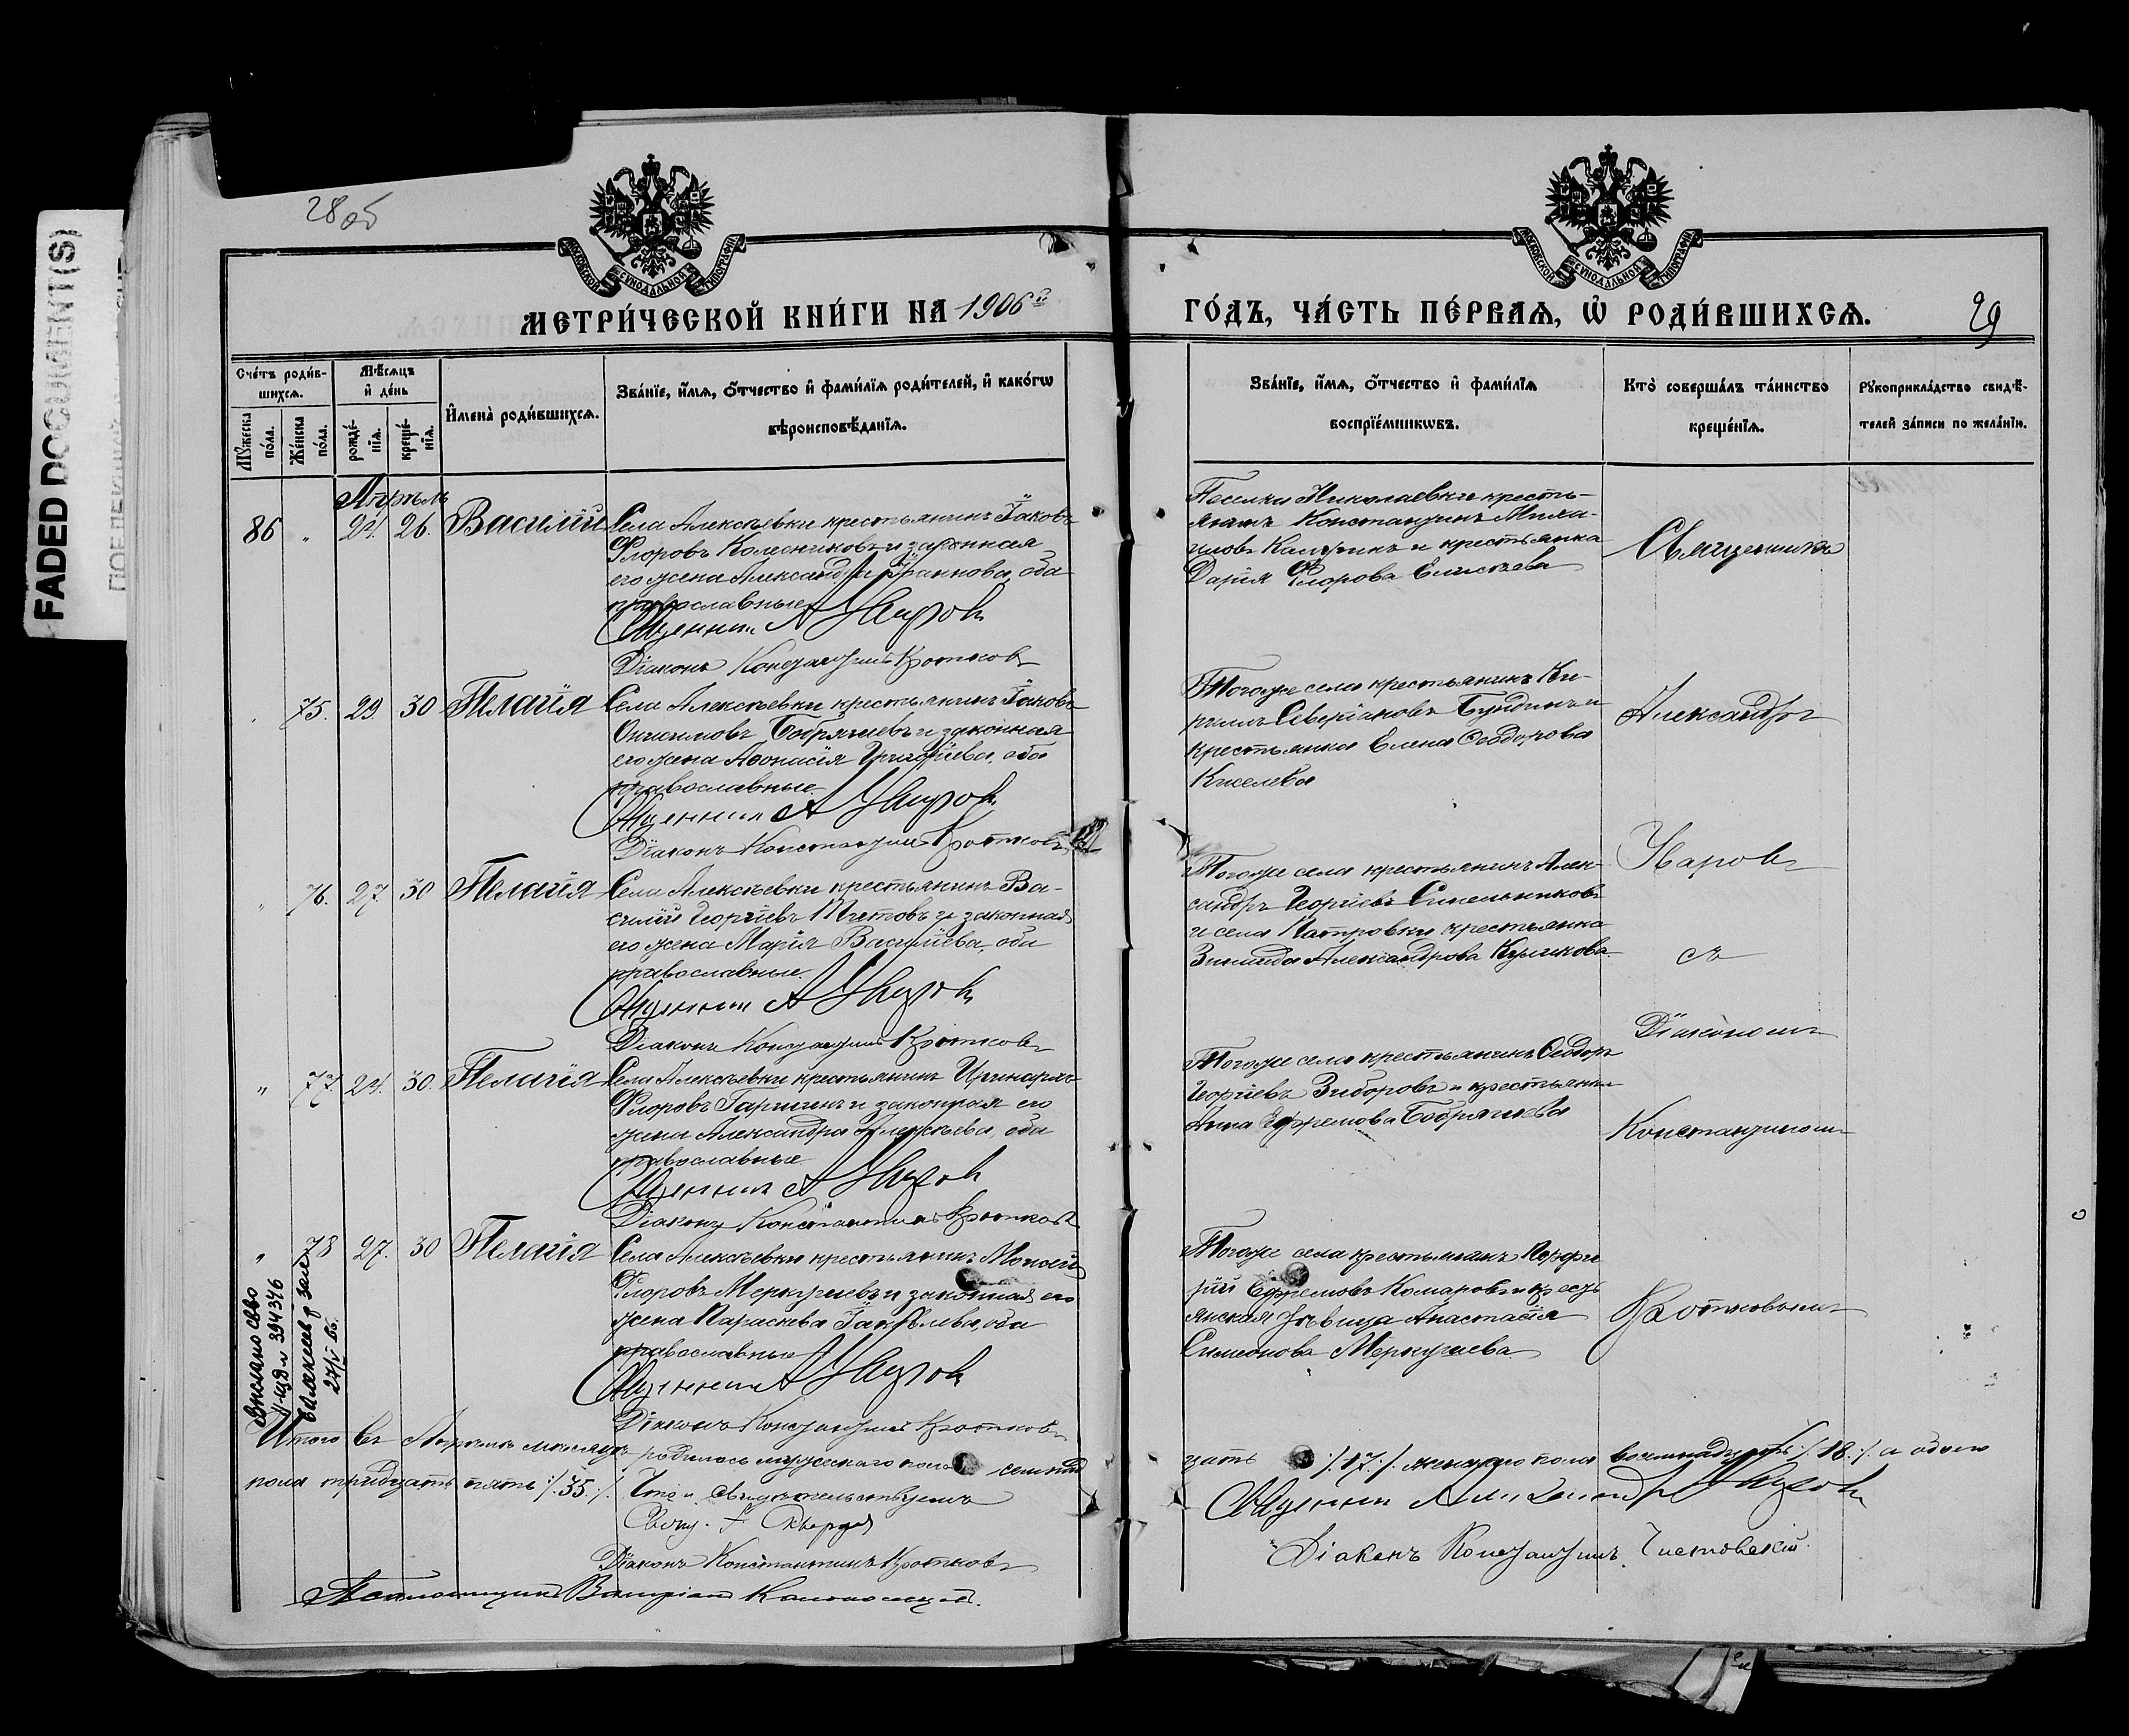 FADED DOCUMENT(S)
28 об
МОСКОВСКОЙ СѴНОДАЛЬНОЙ ТИПОГРАФІИ
МОСКОВСКОЙ СѴНОДАЛЬНОЙ ТИПОГРАФІИ
МЕТРИ́ЧЕСКОЙ КНИ́ГИ НА 1906й
ГО́ДЪ, ЧА́СТЬ ПЕ́РВАѦ, Ѡ РОДИ́ВШИХСѦ. 29
Сче́тъ роди́в-
шихсѧ.
Мꙋ́жеска по́ла.
Же́нска по́ла.
Мѣ́сѧцъ
и҆ де́нь
рожде́-
нїѧ.
креще́-
нїѧ.
И҆мена̀ роди́вшихсѧ.
Зва́нїе, и҆́мѧ, ѻ҆́тчество и҆ фами́лїѧ роди́телей, и҆ како́гѡ
вѣроисповѣ́данїѧ.
Зва́нїе, и҆́мѧ, ѻ҆́тчество и҆ фами́лїѧ
воспрїе́мникѡвъ.
Кто̀ соверша́лъ та́инство
креще́нїѧ.
Рꙋкоприкла́дство свидѣ́-
телей за́писи по жела́нїю.
Апрѣль
86 " 24. 26. Василій
Села Алексѣевки крестьянинъ Іаковъ
Флоровъ Колесниковъ и законная
его жена Александра Іоаннова, оба
православные
Священникъ А Уваровъ
Діаконъ Константинъ Кротковъ
Поселка Николаевки кресть-
янинъ Константинъ Михаи-
ловъ и крестьянка
Дарія Флорова Елисѣева
75. 29. 30 Пелагія
Села Алексѣевки крестьянинъ Іаковъ
Онисимовъ Бобрышевъ и законная
его жена Аѳонасія Григоріева, оба
православные.
Священникъ А Уваровъ
Діаконъ Константинъ Кротковъ
Тогоже села крестьянинъ Ки-
риллъ Северіановъ Бундинъ и
крестьянка Елена Ѳеодорова
Киселева
" 76. 27. 30 Пелагія
Села Алексѣевки крестьянинъ Ва-
силій Георгіевъ Титовъ и законная
его жена Марія Василіева, оба
православные.
Священникъ А Уваровъ
Діаконъ Константинъ Кротковъ
Тогоже села крестьянинъ Алек-
сандръ Георгіевъ Синельниковъ
и села Патровки крестьянка
Зинаида Александрова Куликова
" 77. 24. 30. Пелагія
Села Алексѣевки крестьянинъ
Флоровъ и законная его
жена Александра Алексѣева, оба
православные
Священникъ А Уваровъ
Діаконъ Константинъ Кротковъ
Тогоже села крестьянинъ Ѳеодоръ
Георгіевъ Зиборовъ и крестьянка
Анна Ефремова Бобрышева
" 78 27. 30 Пелагія
Села Алексѣевки крестьянинъ Моисей
Флоровъ Меркушевъ и законная его
жена Параскева Іаковлева, оба
православные
Священникъ А Уваровъ
Діаконъ Константинъ Кротковъ
Тогоже села крестьянинъ Порфи-
рій Ефремовъ Комаровъ и кресть-
янская дѣвица Анастасія
Симеонова Меркушева
Священникъ
Александръ
Уваровъ
съ
Діакономъ
Константиномъ
Кротковымъ
Выслано св-во
394346
Итого въ Апрѣлѣ мѣсяцѣ родилось мужескаго пола семнад
цать /.17./. женскаго пола восемнадцать /.18./. а обоего
пола тридцать пять /.35./. Что и свидѣтельствуемъ
Священникъ Александръ Уваровъ
Діаконъ Константинъ Кротковъ
Діаконъ Константинъ Чистовскій
Псаломщикъ Валеріанъ